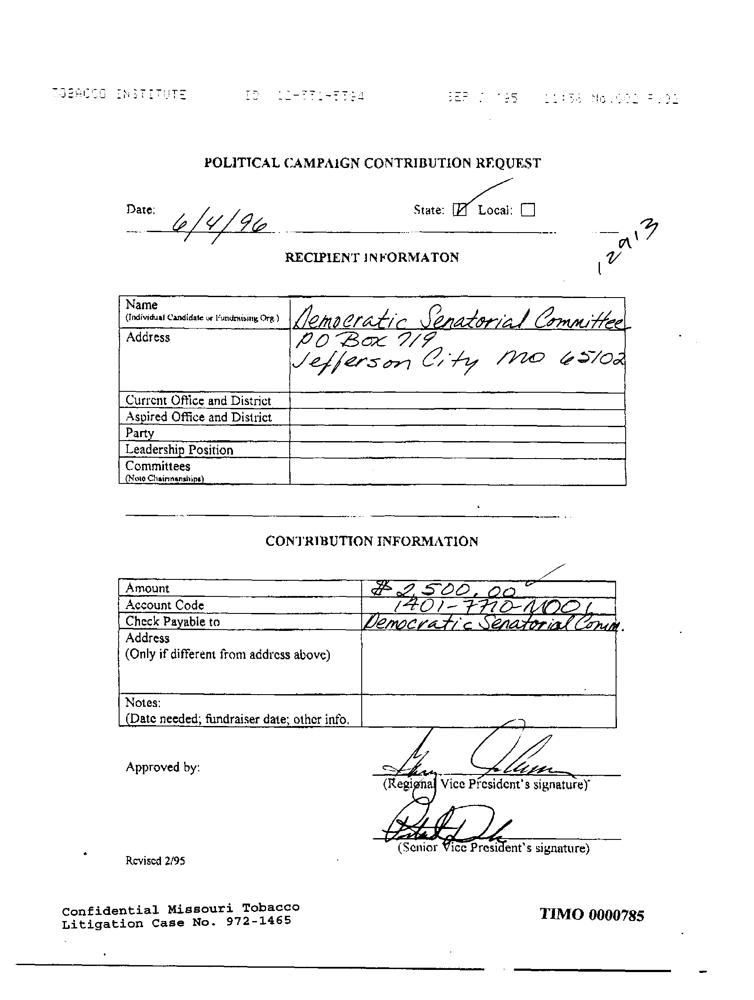 TOBACCO INSTITUTE
POLITICAL CAMPAIGN CONTRIBUTION REQUEST
Date: 6/4/96 State: Local:
12913
RECIPIENT INFORMATON
Name
(Individual Candidate or Fundraising Org.)
Democratic Senatorial Committee
Address
PO Box 719
Jefferson City MO 65102
Current Office and District
Aspired Office and District
Party
Leadership Position
Committees
(Note Chairmanships)
CONTRIBUTION INFORMATION
Amount $ 2,500.00
Account Code
Check Payable to Democratic Senatorial Comm.
Address
(Only if different from address above)
Notes:
(Date needed; fundraiser date; other info.
Approved by:
(Regional Vice President's signature)
(Senior Vice President's signature)
Revised 2/95
Confidential Missouri Tobacco
Litigation Case No. 972-1465
TIMO 0000785